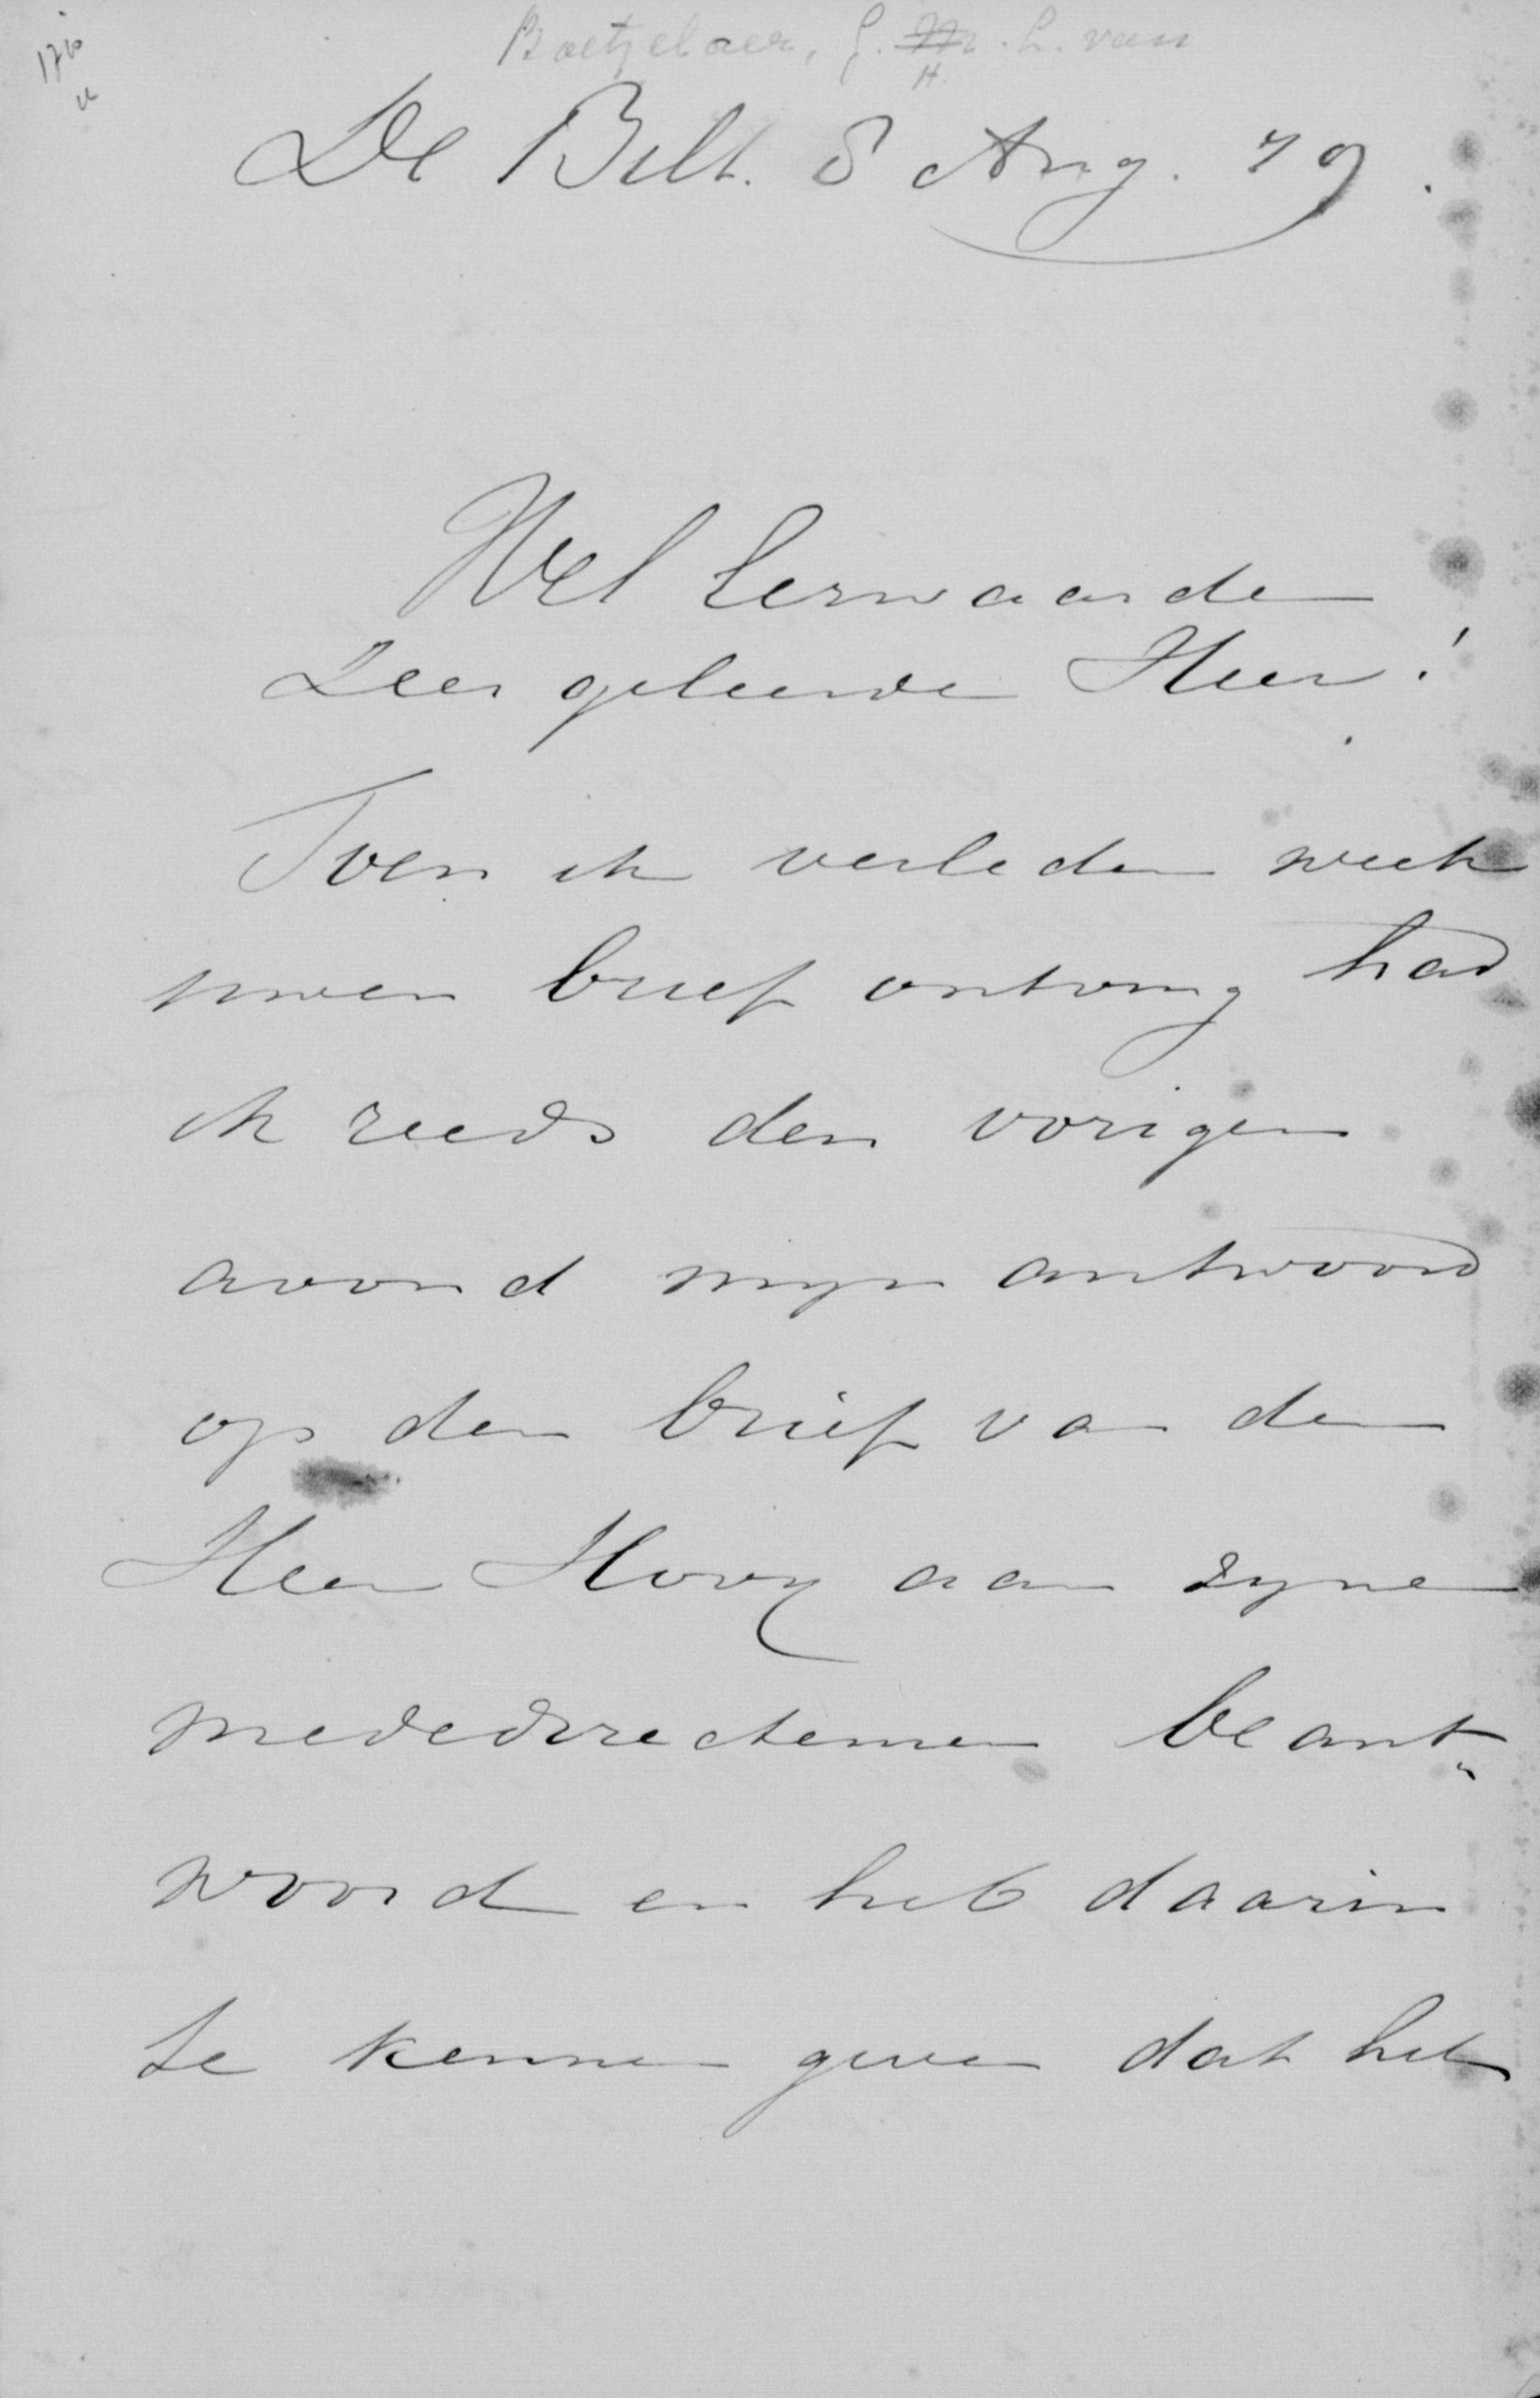 Boetzelaer, G. M. L. van
H.
De Bilt. 8 Aug. 79.
Wel Eerwaarde
Zeer geleerde Heer!
Toen ik verleden week
uwen brief ontving had
ik reeds den vorigen
avond mijn antwoord
op den brief van den
Heer Hovy aan zyne
mededirecteuren beant„
woord en heb daarin
te kennen geven dat het